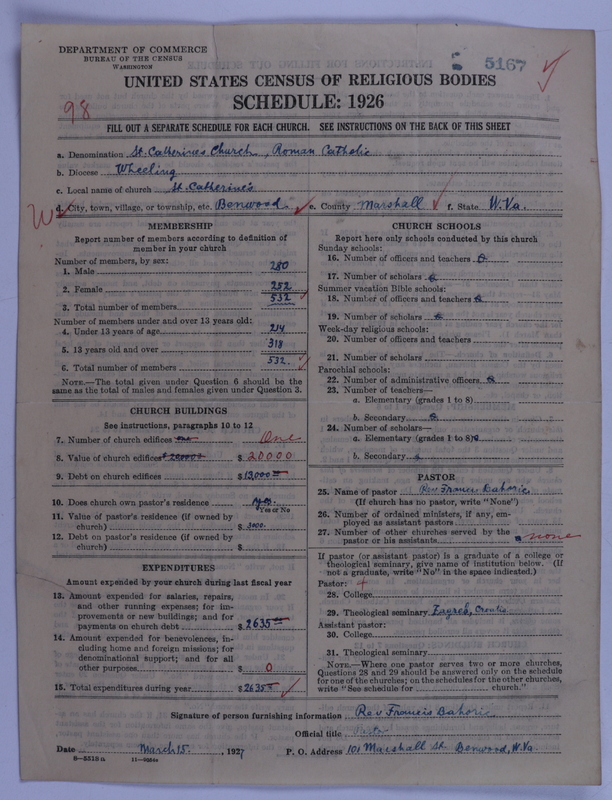 DEPARTMENT OF COMMERCE
BUREAU OF THE CENSUS
WASHINGTON
5167
UNITED STATES CENSUS OF RELIGIOUS BODIES
SCHEDULE: 1926
98
FILL OUT A SEPARATE SCHEDULE FOR EACH CHURCH. SEE INSTRUCTIONS ON THE BACK OF THIS SHEET
a. Denomination St. Catherine's Church, Roman Catholic
b. Diocese Wheeling
c. Local name of church St. Catherine's
d. City, town, village, or township, etc. Benwood e. County Marshall f. State W. Va.
MEMBERSHIP
Report number of members according to definition of member in your church
Number of members, by sex:
1. Male 280
2. Female 252
3. Total number of members 532
Number of members under and over 13 years old:
4. Under 13 years of age 214
5. 13 years old and over 318
6. Total number of members 532
NOTE.—The total given under Question 6 should be the same as the total of males and females given under Question 3.
CHURCH BUILDINGS
See instructions, paragraphs 10 to 12
7. Number of church edifices one One
8. Value of church edifices $ 20000
9. Debt on church edifices $13,000
10. Does church own pastor's residence yes.
Yes or No
11. Value of pastor's residence (if owned by church) $ 3000.
12. Debt on pastor's residence (if owned by church) $
EXPENDITURES
Amount expended by your church during last fiscal year
13. Amount expended for salaries, repairs, and other running expenses; for improvements or new buildings; and for payments on church debt $ 2635
14. Amount expended for benevolences, including home and foreign missions; for denominational support; and for all other purposes $ 0
15. Total expenditures during year $ 2635
CHURCH SCHOOLS
Report here only schools conducted by this church
Sunday schools:
16. Number of officers and teachers 0
17. Number of scholars 0
Summer vacation Bible schools:
18. Number of officers and teachers 0
19. Number of scholars 0
Week-day religious schools:
20. Number of officers and teachers
21. Number of scholars
Parochial schools:
22. Number of administrative officers 0
23. Number of teachers—
a. Elementary (grades 1 to 8)
b. Secondary 0
24. Number of scholars—
a. Elementary (grades 1 to 8) 0
b. Secondary
PASTOR
25. Name of pastor Rev Francis Bahoric
(If church has no pastor, write "None")
26. Number of ordained ministers, if any, employed as assistant pastors
27. Number of other churches served by the pastor or his assistants none
If pastor (or assistant pastor) is a graduate of a college or theological seminary, give name of institution below. (If not a graduate, write "No" in the space indicated.)
Pastor:
28. College
29. Theological seminary Zagreb, Croatia
Assistant pastor:
30. College
31. Theological seminary
NOTE.—Where one pastor serves two or more churches, Questions 28 and 29 should be answered only on the schedule for one of the churches; on the schedules for the other churches, write "See schedule for church."
Signature of person furnishing information Rev Francis Bahoric
Official title Pastor
Date March 15, 1927 P. O. Address 101 Marshall St. Benwood, W. Va.
8—5518 a